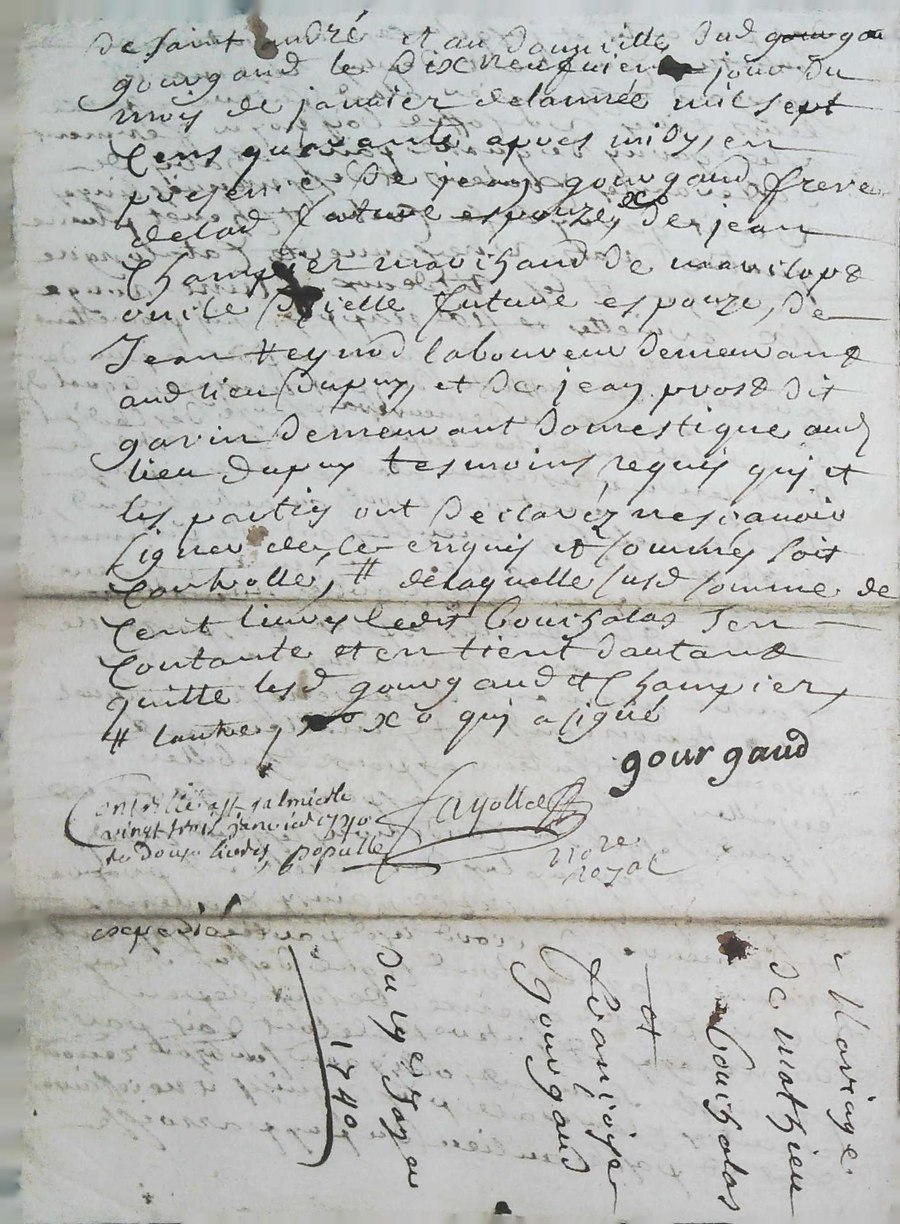 de saint andré et au domicille dud gourgau
gourgaud le dix neufvieme jour du
mois de janvier delannée mil sept
Cens quarante apres midy, en
présence de jean gourgaud frere
delad future espouze, x de jean
Champier marchand de
oncle d'jcelle future espouze, de
Jean Reynod laboureur demeurant
aud lieu dupuy, et de jean prost dit
garin demeurant domestique aud
lieu dupuy tesmoins requis qui et
les parties ont declaréz nescavoir
signer de ce enquis et sommés soit
Controllé, # delaquelle susd somme de
Cent livres ledit Couzholas sen
Contante et en tient dautant
quitte lesd gourgaud et Champier,
# lautre, x o qui a signé
gourgaud
Controllé a st galmier le
vingt trois janvier 1740
re douze livres, populle
Fayolle
nore
royal
expedié
Mariage
de mathieu
Couzholas
et
françoise
gourgaud
du 19e Janv
1740